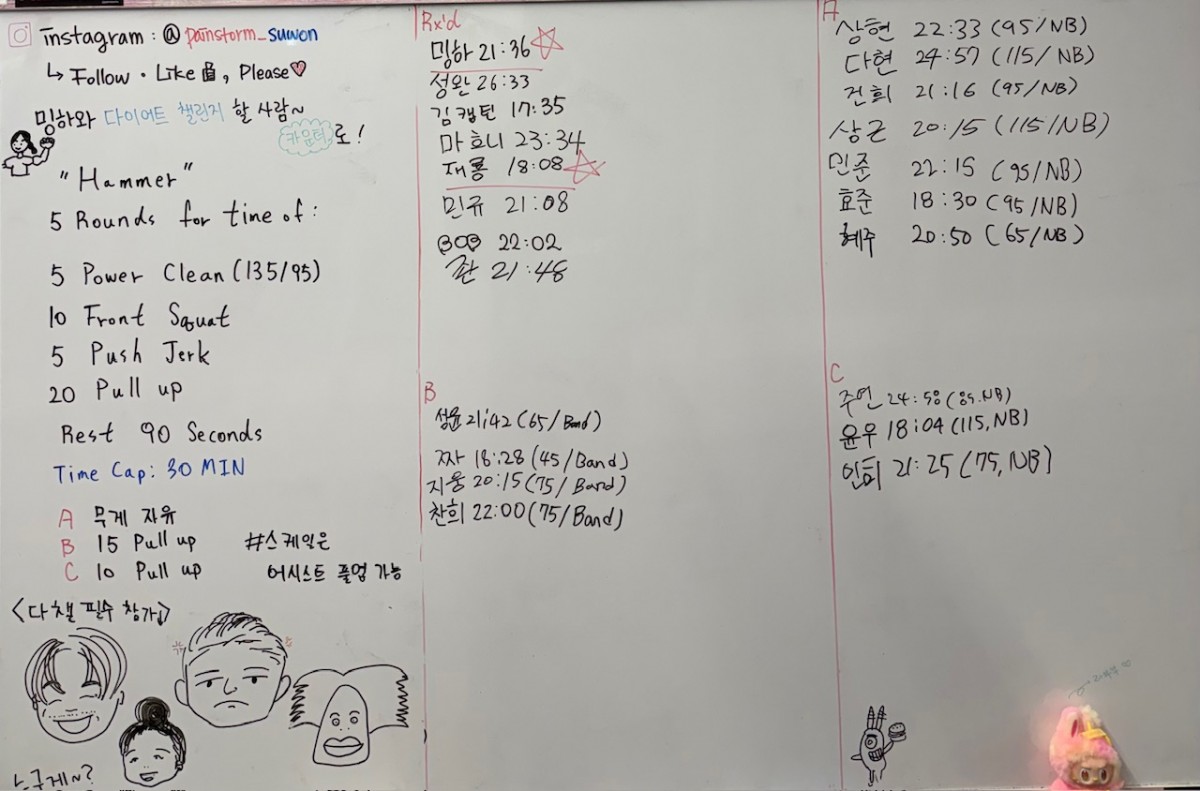 instagram : @ painstorm_suwon
↳ Follow · Like , Please♡
밍하와 다이어트 챌린지 할 사람~
카운터로!
"Hammer"
5 Rounds for time of :
5 Power Clean (135/95)
10 Front Squat
5 Push Jerk
20 Pull up
Rest 90 Seconds
Time Cap: 30 MIN
A 무게 자유
B 15 Pull up #스케일은
C 10 Pull up 어시스트 풀업 가능
<다챌 필수 참가>
Rx'd
밍하 21:36
성완 26:33
김캡틴 17:35
마호니 23:34
재룡 18:08
민규 21:08
BOB 22:02
21:48
B
성윤 21:42 (65/Band)
짜 18:28 (45/Band)
지웅 20:15 (75/Band)
찬희 22:00 (75/Band)
A
상현 22:33 (95/NB)
다현 24:57 (115/NB)
건희 21:16 (95/NB)
상근 20:15 (115/NB)
민준 22:15 (95/NB)
효준 18:30 (95/NB)
혜주 20:50 (65/NB)
C
주연
윤우 18:04 (115, NB)
인희 21:25 (75, NB)